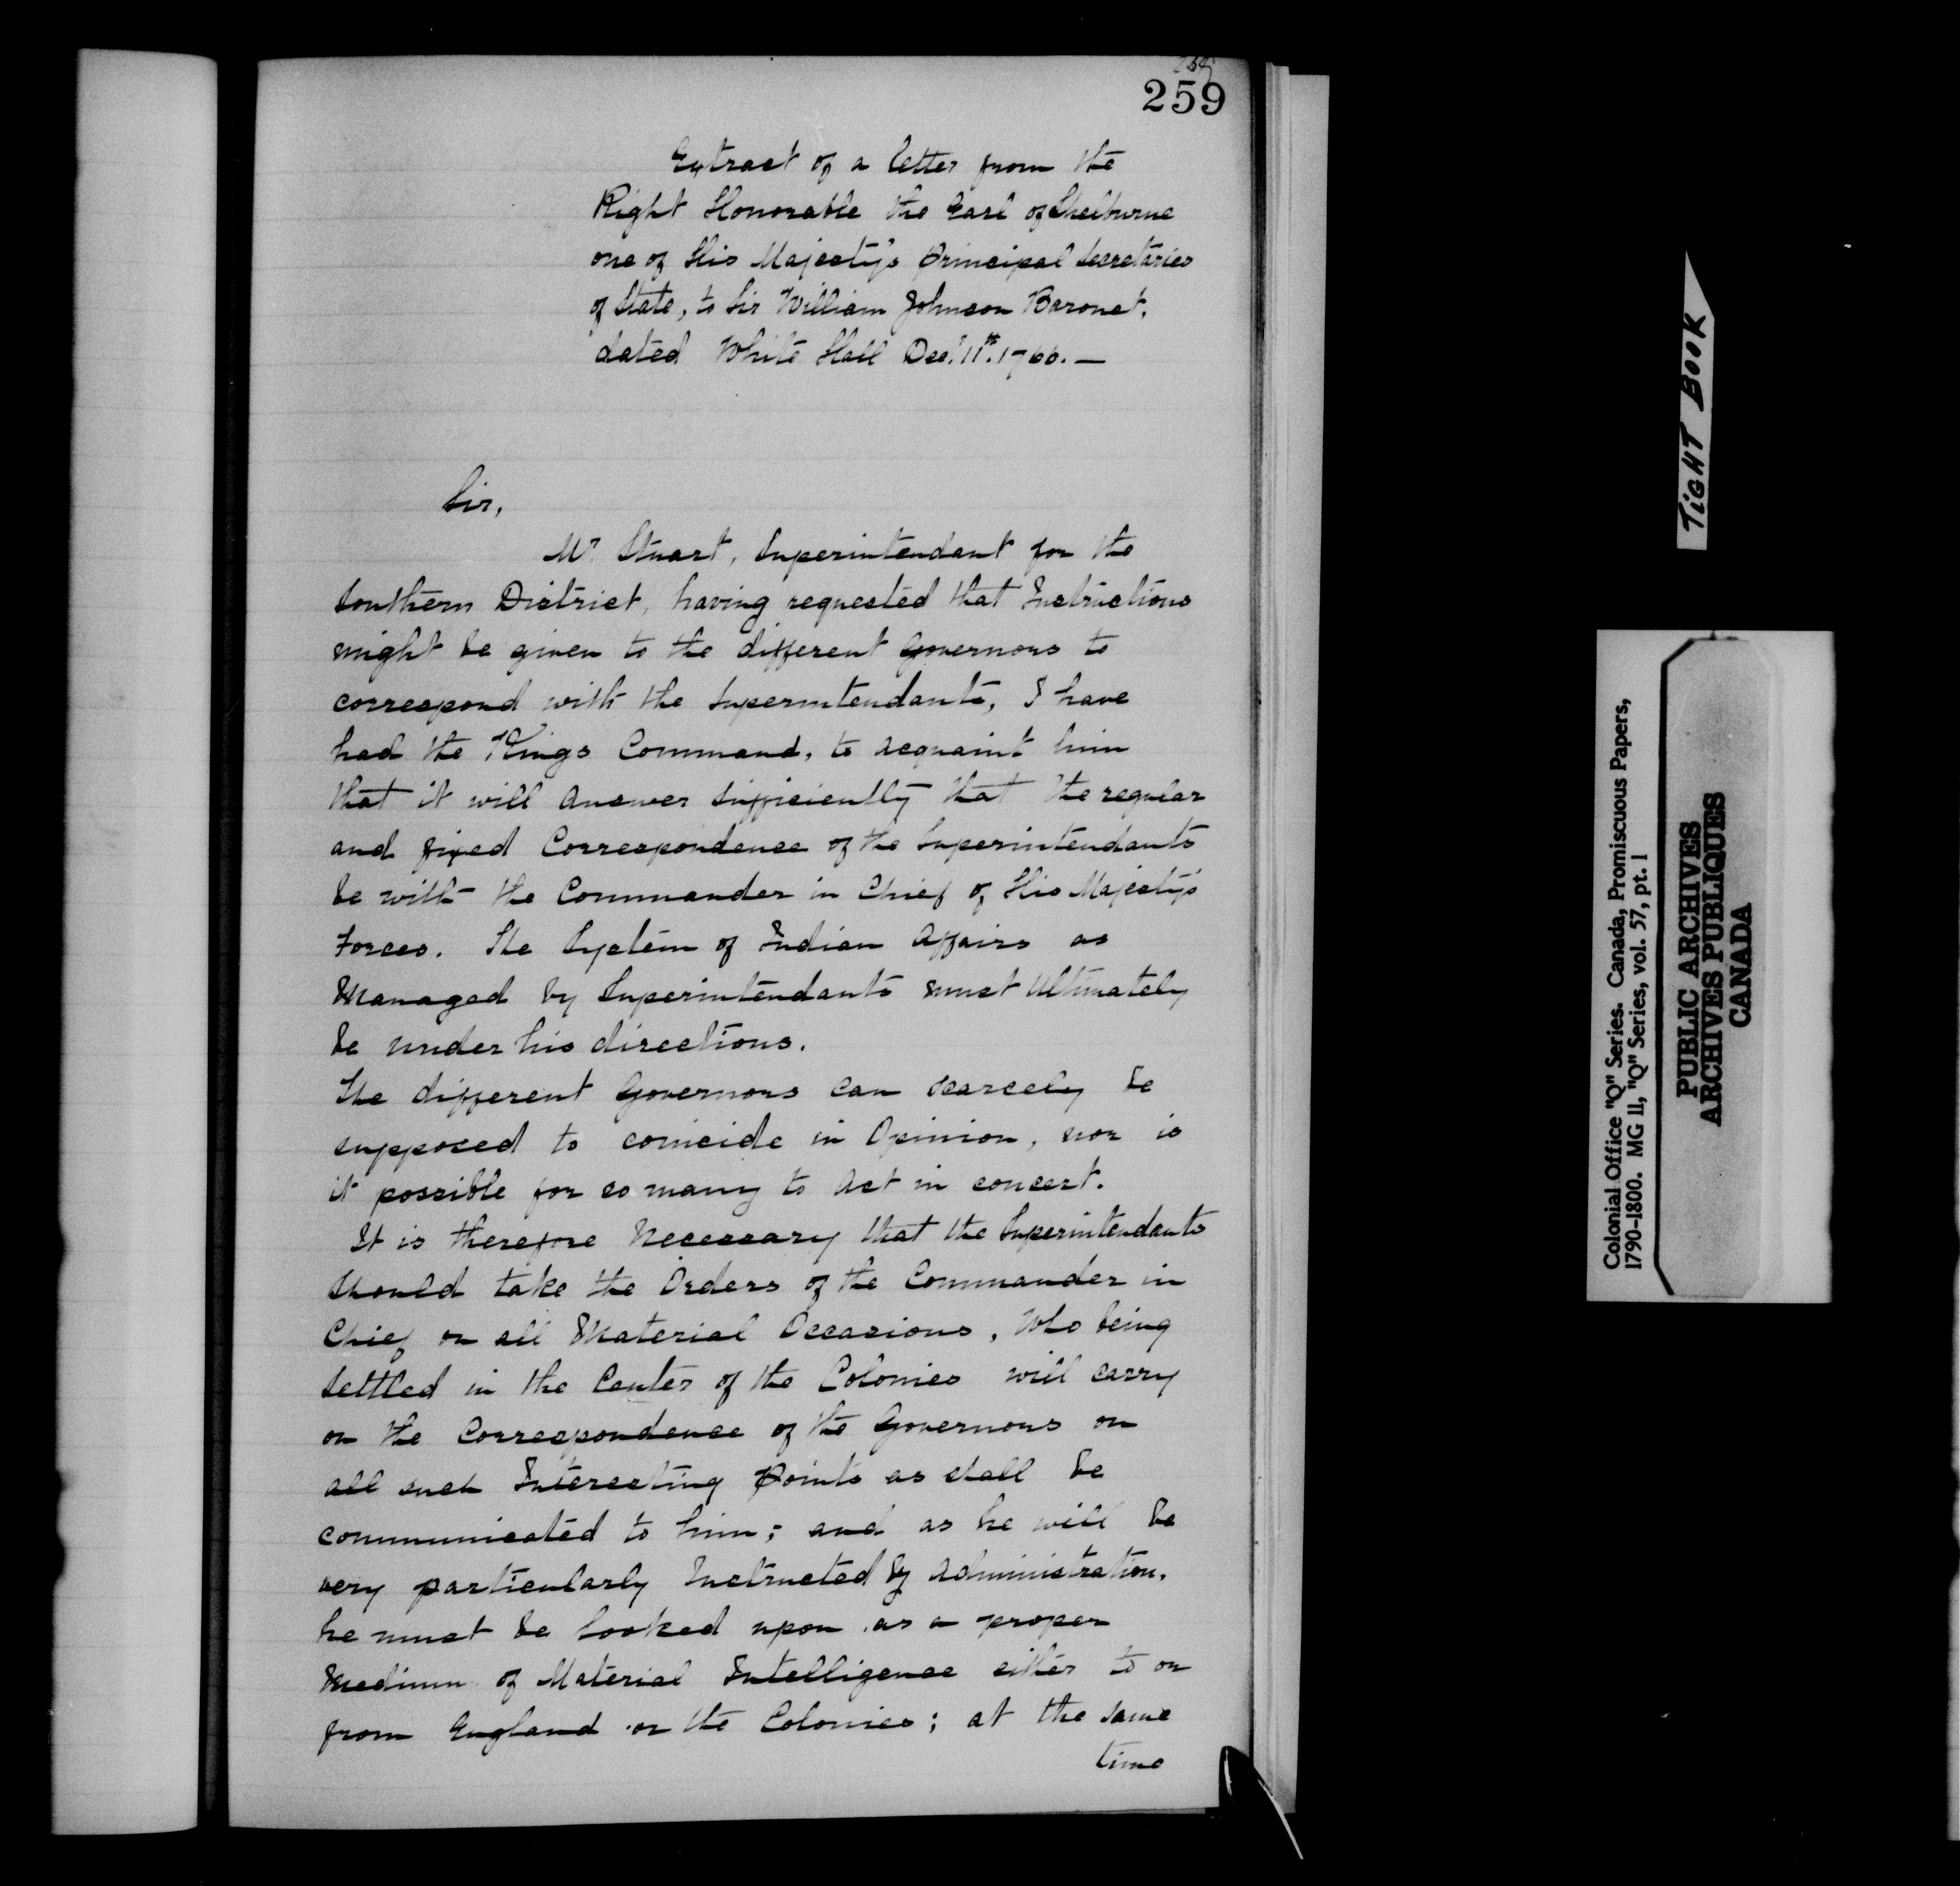 259
Extract of a letter from the
Right Honorable the Earl of Shelburne
one of His Majesty's Principal Secretaries
of State, to Sir William Johnson Baronet,
dated White Hall Dec.r 11th. 1766. —
Sir,
Mr Stuart, Superintendant for the
Southern District, having requested that Instructions
might be given to the different Governors to
correspond with the Superintendants, I have
had the Kings Command, to acquaint him
that it will answer sufficiently that the regular
and fixed Correspondence of the Superintendants
be with the Commander in Chief of His Majesty's
Forces. The System of Indian Affairs as
Managed by Superintendants must Ultimately
be under his directions.
The different Governors can scarcely be
supposed to coincide in Opinion, nor is
it possible for so many to Act in concert.
It is therefore Necessary that the Superintendants
should take the Orders of the Commander in
Chief on all Material Occasions, Who being
settled in the Center of the Colonies will carry
on the Correspondence of the Governors on
all such Interesting Points as shall be
communicated to him; and as he will be
very particularly Instructed by Administration,
he must be looked upon as a proper
Medium of Material Intelligence either to or
from England or the Colonies; at the same
time
TIGHT BOOK
Colonial Office "Q" Series. Canada, Promiscuous Papers,
1790-1800. MG 11, "Q" Series, vol. 57, pt. 1
PUBLIC ARCHIVES
ARCHIVES PUBLIQUES
CANADA